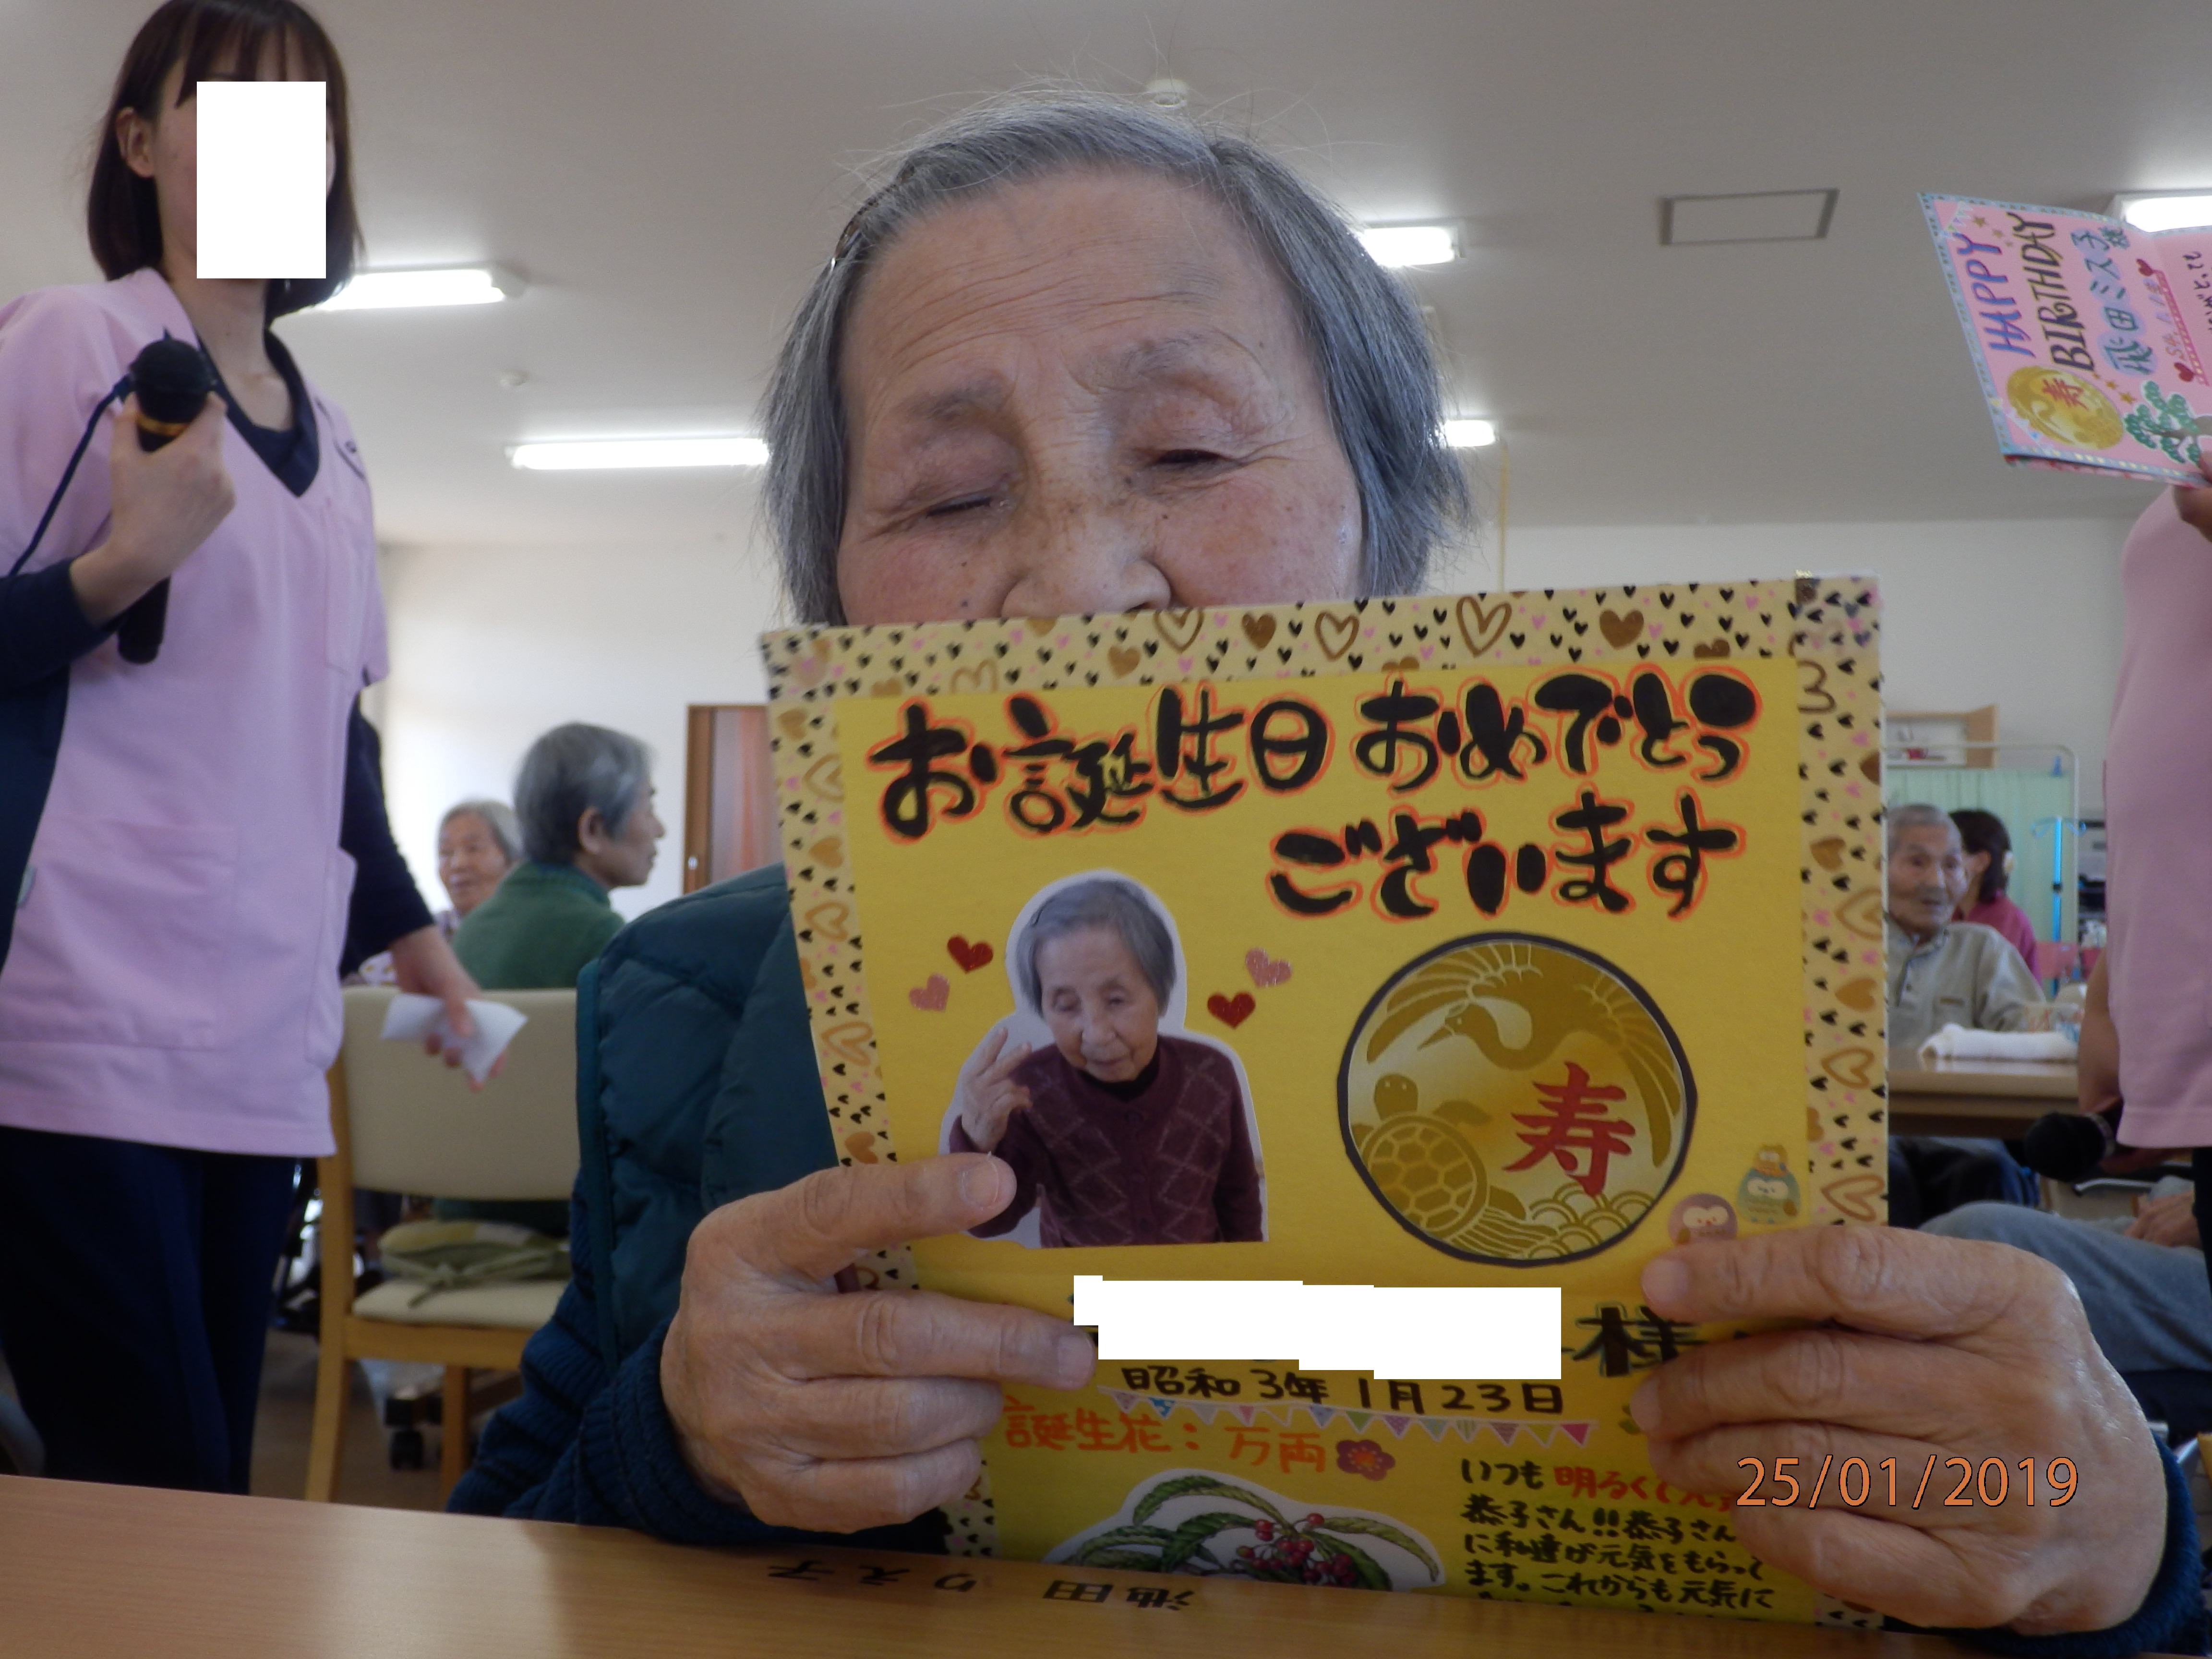 お誕生日おめでとう
ございます
寿
様
昭和3年1月23日
誕生花:万両
いつも明るくて元
恭子さん!!恭子さん
に私達が元気をもらって
ます。これからも元気に
HAPPY
BIRTHDAY
飛田ミス子様
寿
池田 りえ子
25/01/2019